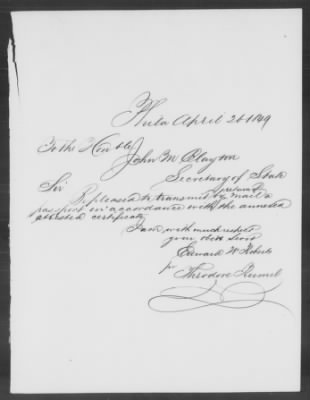 Phila April 26 1849
To the Hon ble
John M Clayton
Secretary of State
Sir
present
Be pleased to transmit by mail a
passport in accordance with the annexed
attested certificate
I am with much respect
your obdt servt
Edward W Roberts
for
Theodore Kummel